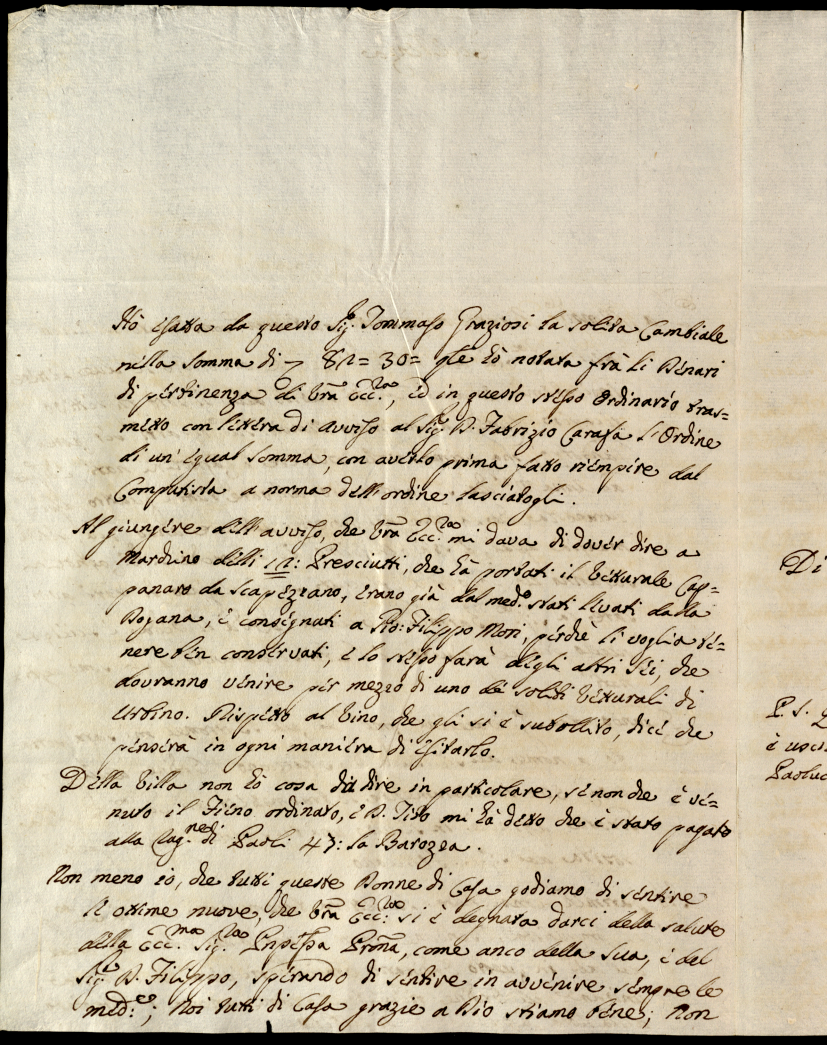 Hò esatta da questo Sig.r Tommaso Graziosi la solita Cambiale
nella somma di 82= 30= che hò notata frà li Denari
di pertinenza di Vrã Ecc.za, ed in questo stesso Ordinario tras=
metto con lettera di avviso al Sig.r D. Fabrizio Carafa l'Ordine
di un'egual somma, con averlo prima fatto riempire dal
Computista a norma dell'ordine lasciatogli.
Al giungere dell'avviso, che Vrã Ecc.za mi dava di dover dire a
Marchino delli 12: Presciutti, che hà portati il Vetturale Cap=
panaro da Scapezzano, erano già dal med.o stati levati dalla
Dogana, e consegnati a Filippo Mori, perchè li voglia te=
nere ben conservati, e lo stesso farà degli altri sei, che
dovranno venire per mezzo di uno de soliti Vetturali di
Urbino. Rispetto al Vino, che gli si è subollito, dice che
penserà in ogni maniera di esitarlo.
Della Villa non hò cosa da dire in particolare, se non che è ve=
nuto il Fieno ordinato, e D. Tito mi hà detto che è stato pagato
alla rag.ne di Paoli 47: la Barozza.
Non meno io, che tutti queste Donne di Casa godiamo di sentire
le ottime nuove, che Vrã Ecc.za si è degnata darci della salute
della Ecc.ma Sig.ra Pñpessa Prõna, come anco della sua, e del
Sig.r D. Filippo, sperando di sentire in avvenire sempre le
med.e; Noi tutti di Casa grazie a Dio stiamo bene; Non
Di
P. S.
è usci
Paoluc